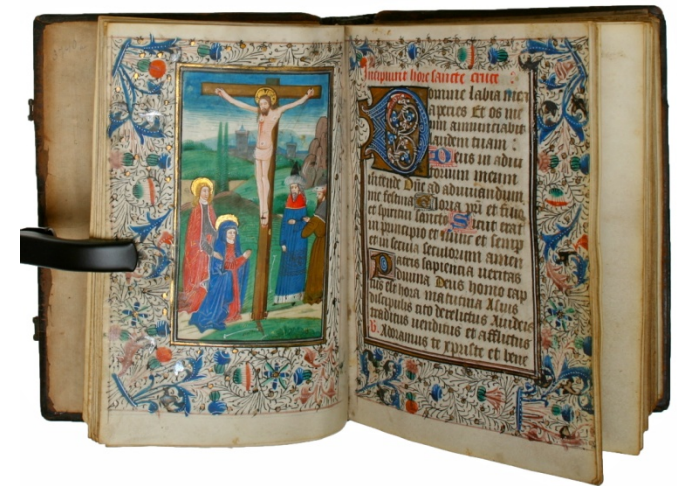 Incipiunt hore sancte crucis
Domine labia mea
aperies Et os me
um annunciabit
laudem tuam :
Deus in adiu
torium meum
intende Dne ad adiuvandum
me festina Gloria pri et filio
et spiritui sancto Sicut erat
in principio et nunc et semper
et in secula seculorum amen
Patris sapiencia veritas
divina Deus homo cap
tus est hora matutina
discipulis cito derelictus
traditus venditus et afflictus
V. Adoramus te xpriste et bene